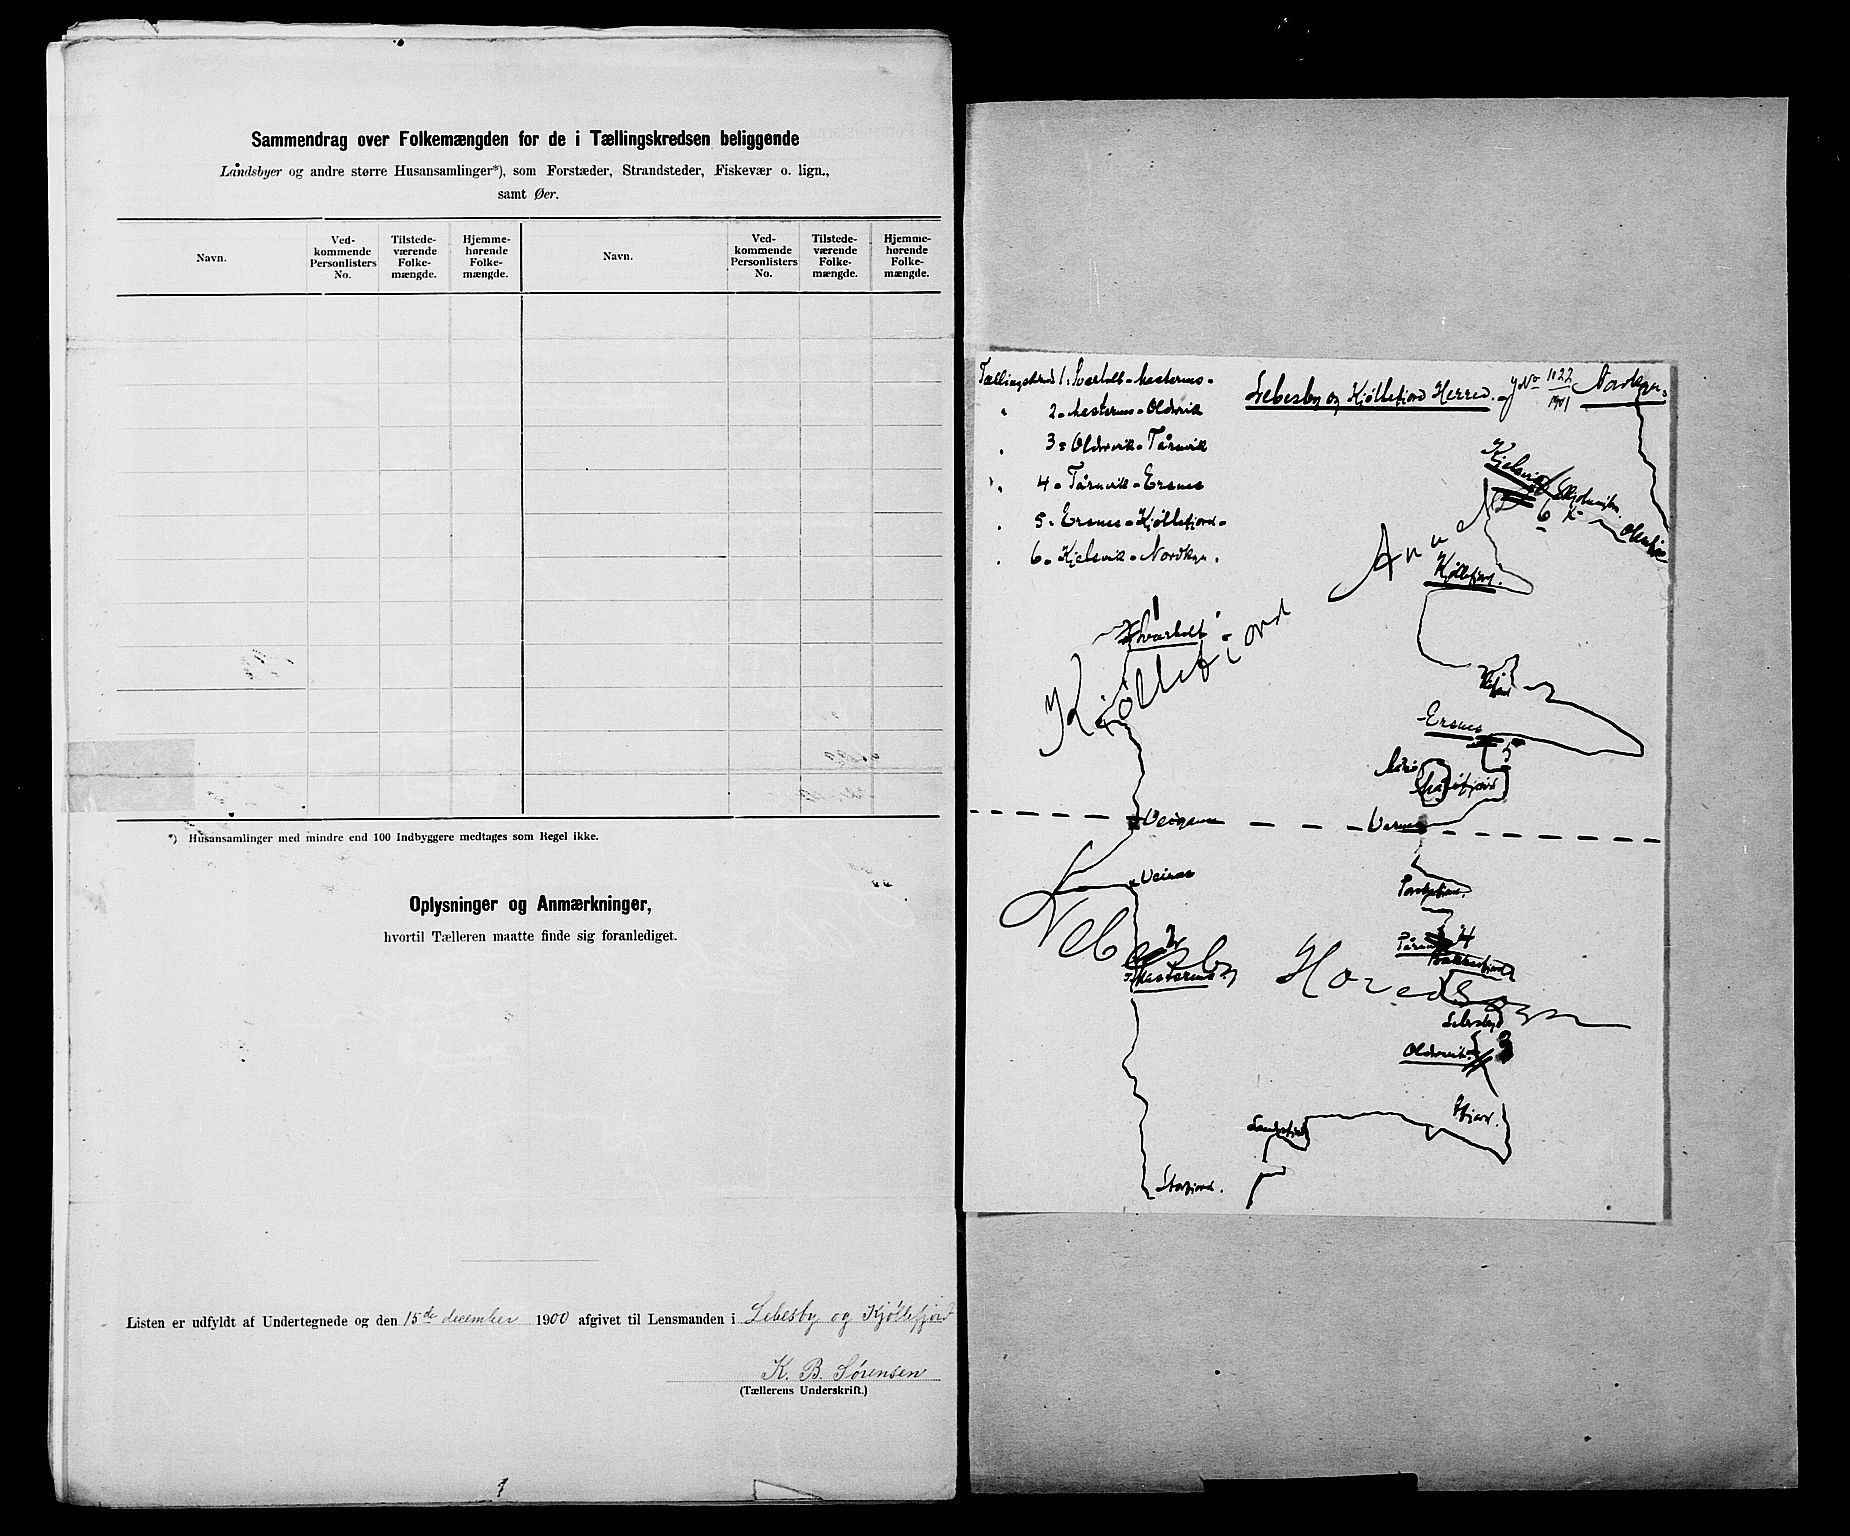 Sammendrag over Folkemængden for de i Tællingskredsen beliggende
Landsbyer og andre større Husansamlinger*), som Forstæder, Strandsteder, Fiskevær o. lign.,
samt Øer.
Navn.
Ved-
kommende
Personlisters
No.
Tilstede-
værende
Folke-
mængde.
Hjemme-
hørende
Folke-
mængde.
Navn.
Ved-
kommende
Personlisters
No.
Tilstede-
værende
Folke-
mængde.
Hjemme-
hørende
Folke-
mængde.
*) Husansamlinger med mindre end 100 Indbyggere medtages som Regel ikke.
Oplysninger og Anmærkninger,
hvortil Tælleren maatte finde sig foranlediget.
Listen er udfyldt af Undertegnede og den 15de december 1900 afgivet til Lensmanden i Lebesby og Kjøllefjord
K. B. Sørensen
(Tællerens Underskrift.)
Tællingskreds 1. Svartolt - Mesternes -
" 2 - Mesternes - Oldervik
" 3 - Oldervik - Tårnvik
" 4 - Tårnvik - Ersnes
" 5 - Ersnes - Kjøllefjord -
" 6 - Kjelsvik - Nordkyn.
Lebesby og Kjøllefjord Herred. - JNo 1022/1901
Nordkyn.
Kjelsvik
6
Kjøllefjord.
Annex
1
Svartolt
Kjøllefjord
Ersnes
5
Veines
Lebesby Hovedsogn
2
Mesternes
4
Bekkarfjord
Lebesby
Oldervik
3
Ifjord.
Landersfjord
Storfjord.